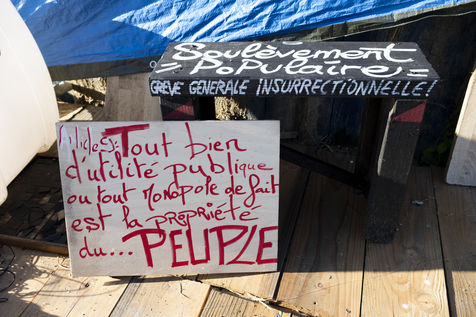 Soulèvement
= Populaire =
GRÈVE GÉNÉRALE INSURRECTIONNELLE !
Tout bien
d'utilité publique
ou tout Monopole de fait
est la propriété
du... PEUPLE